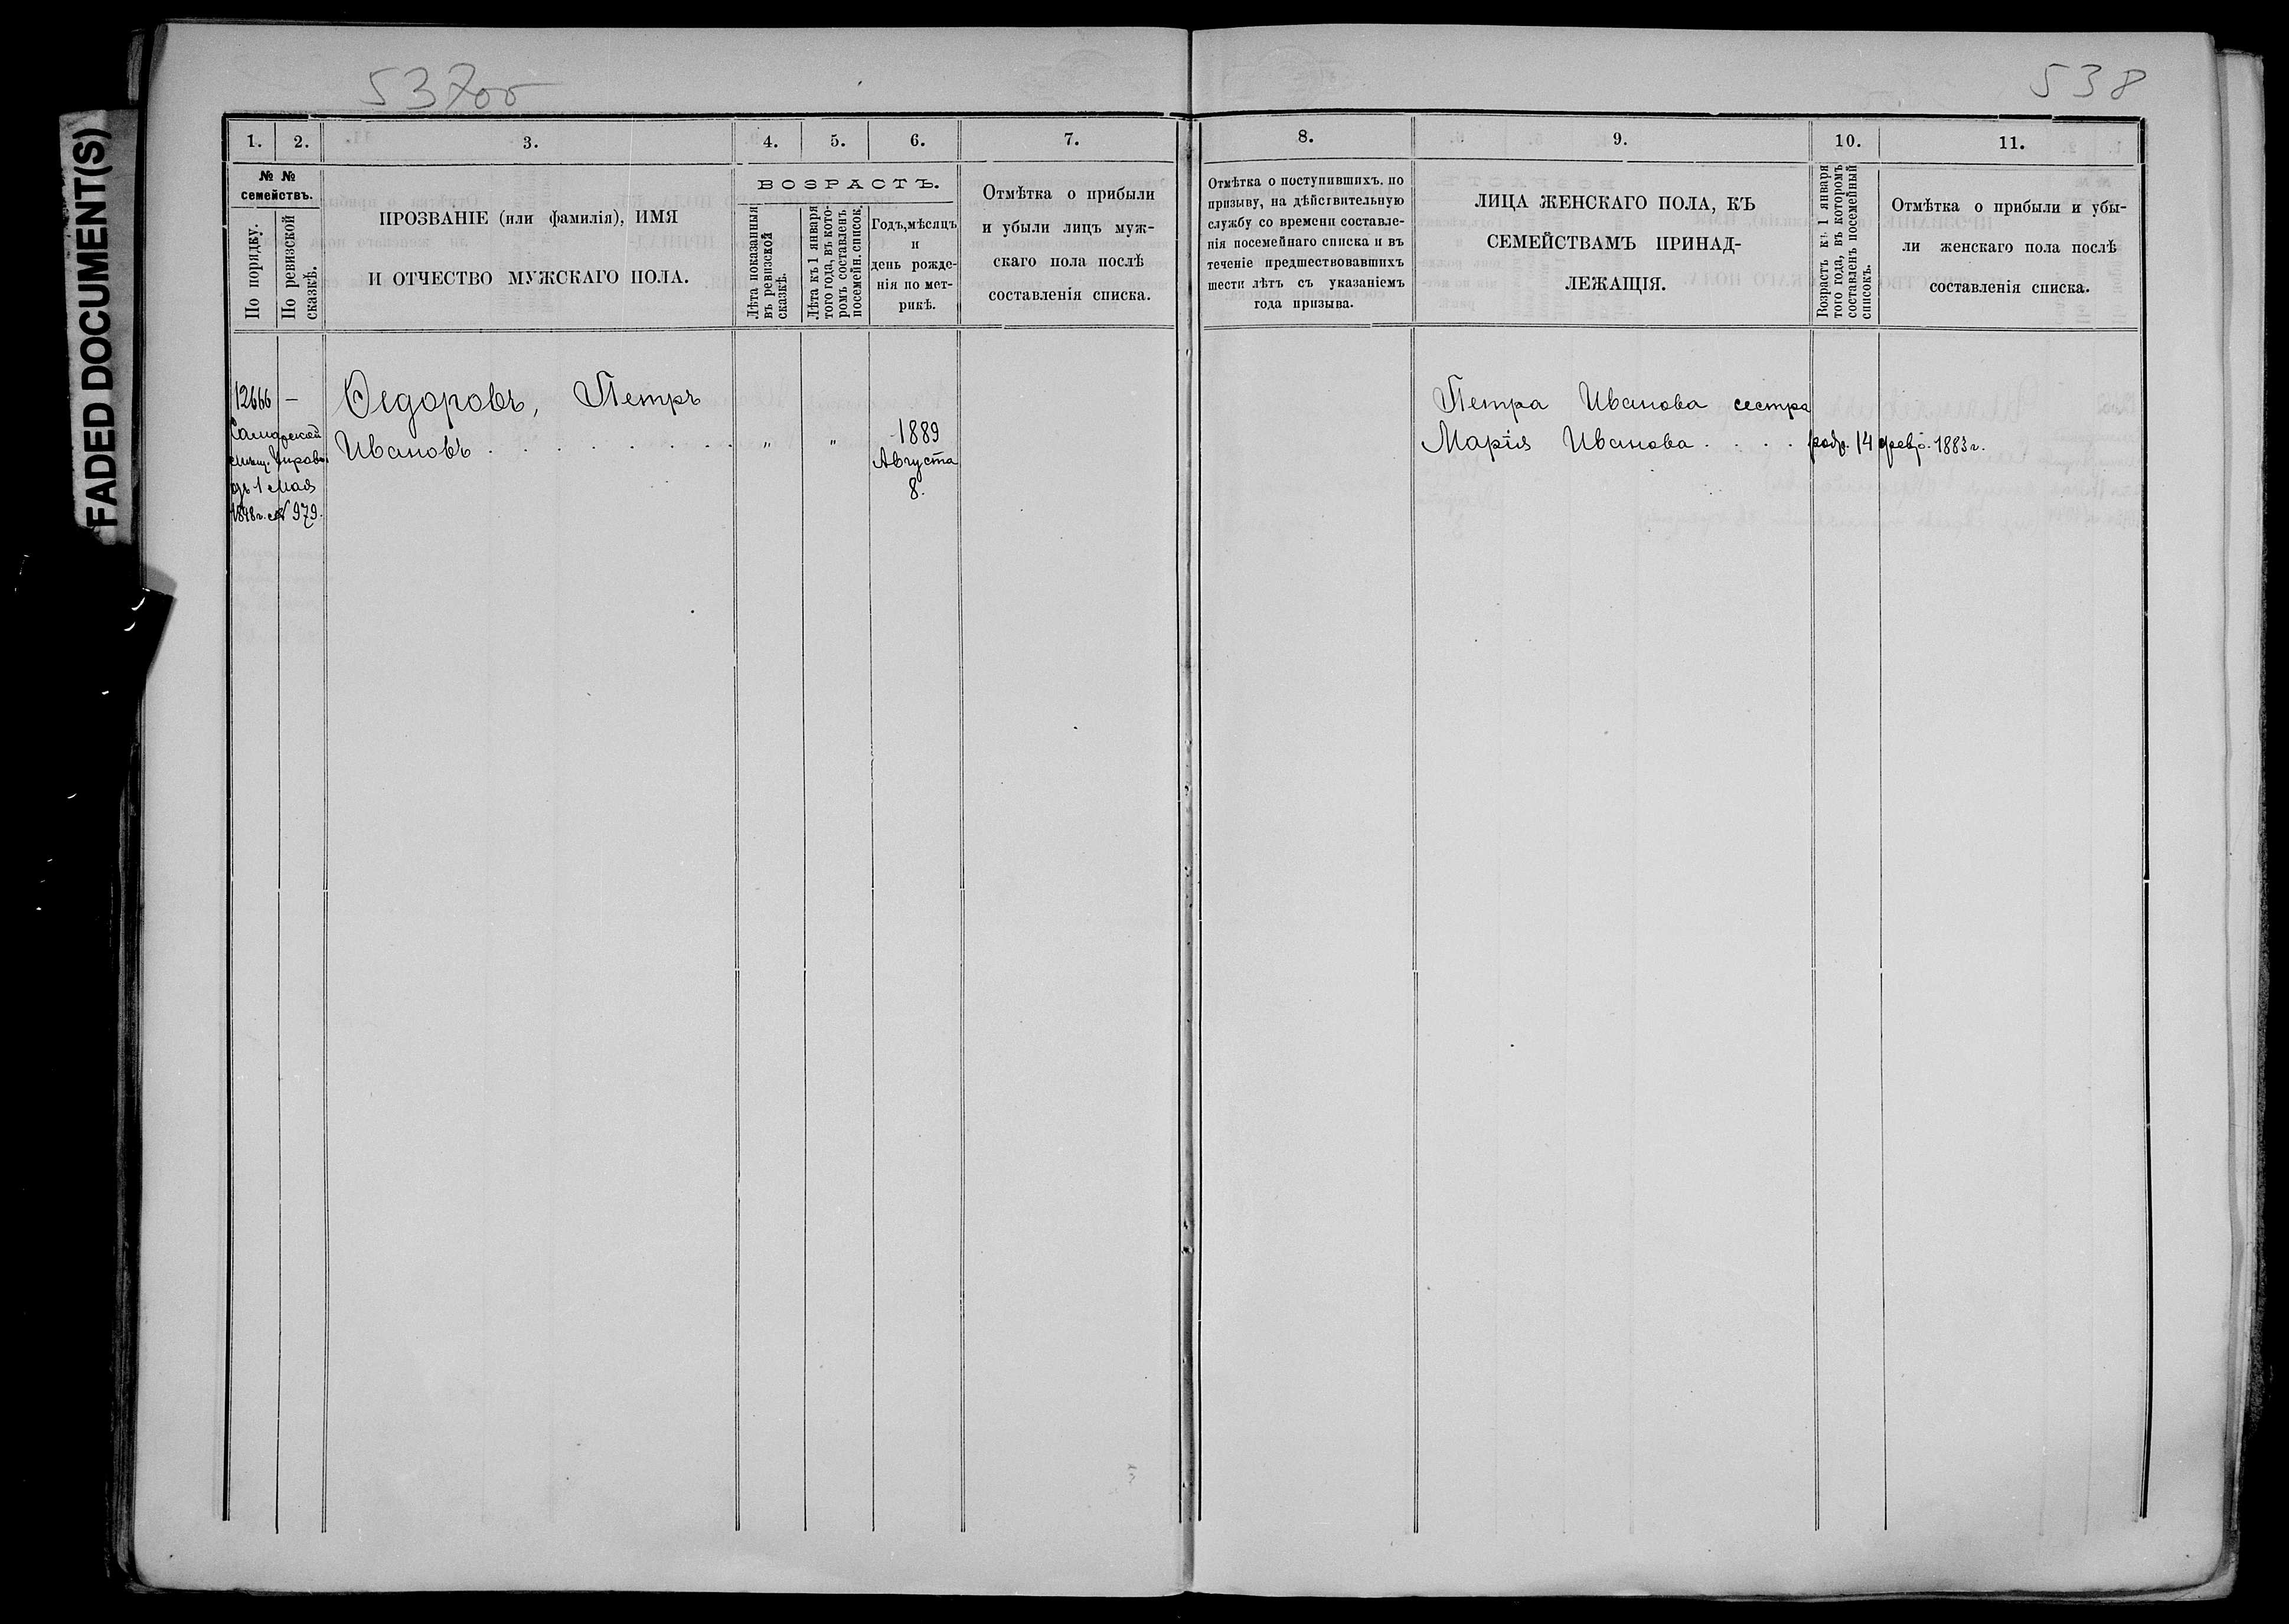 FADED DOCUMENT(S)
537об
538
1.
2.
3.
4.
5.
6.
7.
№ №
семействъ.
По порядку.
По ревизской
сказкѣ.
ПРОЗВАНІЕ (или фамилія), ИМЯ
И ОТЧЕСТВО МУЖСКАГО ПОЛА.
ВОЗРАСТЪ.
Лѣта показанныя
въ ревизской
сказкѣ.
Лѣта къ 1 января
того года, въ кото-
ромъ составленъ
посемейн. список.
Годъ, мѣсяцъ
и
день рожде-
нія по мет-
рикѣ.
Отмѣтка о прибыли
и убыли лицъ муж-
скаго пола послѣ
составленія списка.
12666 —
Самарской
мѣщ. Управы
отъ 1 Мая
1898 г. № 979.
Ѳедоровъ, Петръ
Ивановъ . . . . . . . „ „
1889
Августа
8.
8.
9.
10.
11.
Отмѣтка о поступившихъ. по
призыву, на дѣйствительную
службу со времени составле-
нія посемейнаго списка и въ
теченіе предшествовавшихъ
шести лѣтъ съ указаніемъ
года призыва.
ЛИЦА ЖЕНСКАГО ПОЛА, КЪ
СЕМЕЙСТВАМЪ ПРИНАД-
ЛЕЖАЩІЯ.
Возрастъ къ 1 января
того года, въ которомъ
составленъ посемейный
списокъ.
Отмѣтка о прибыли и убы-
ли женскаго пола послѣ
составленія списка.
Петра Иванова сестра
Марія Иванова . . . . родр. 14 февр. 1883 г.